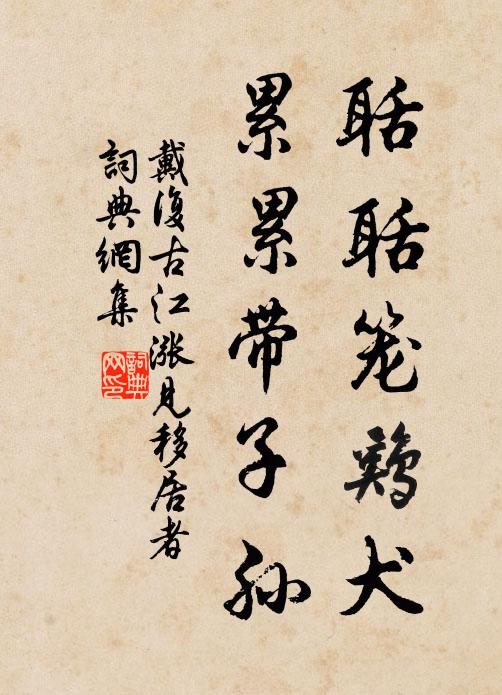 聒聒笼鷄犬
累累带子孙
戴復古江漲見移居者
詞典網集
詞典网印